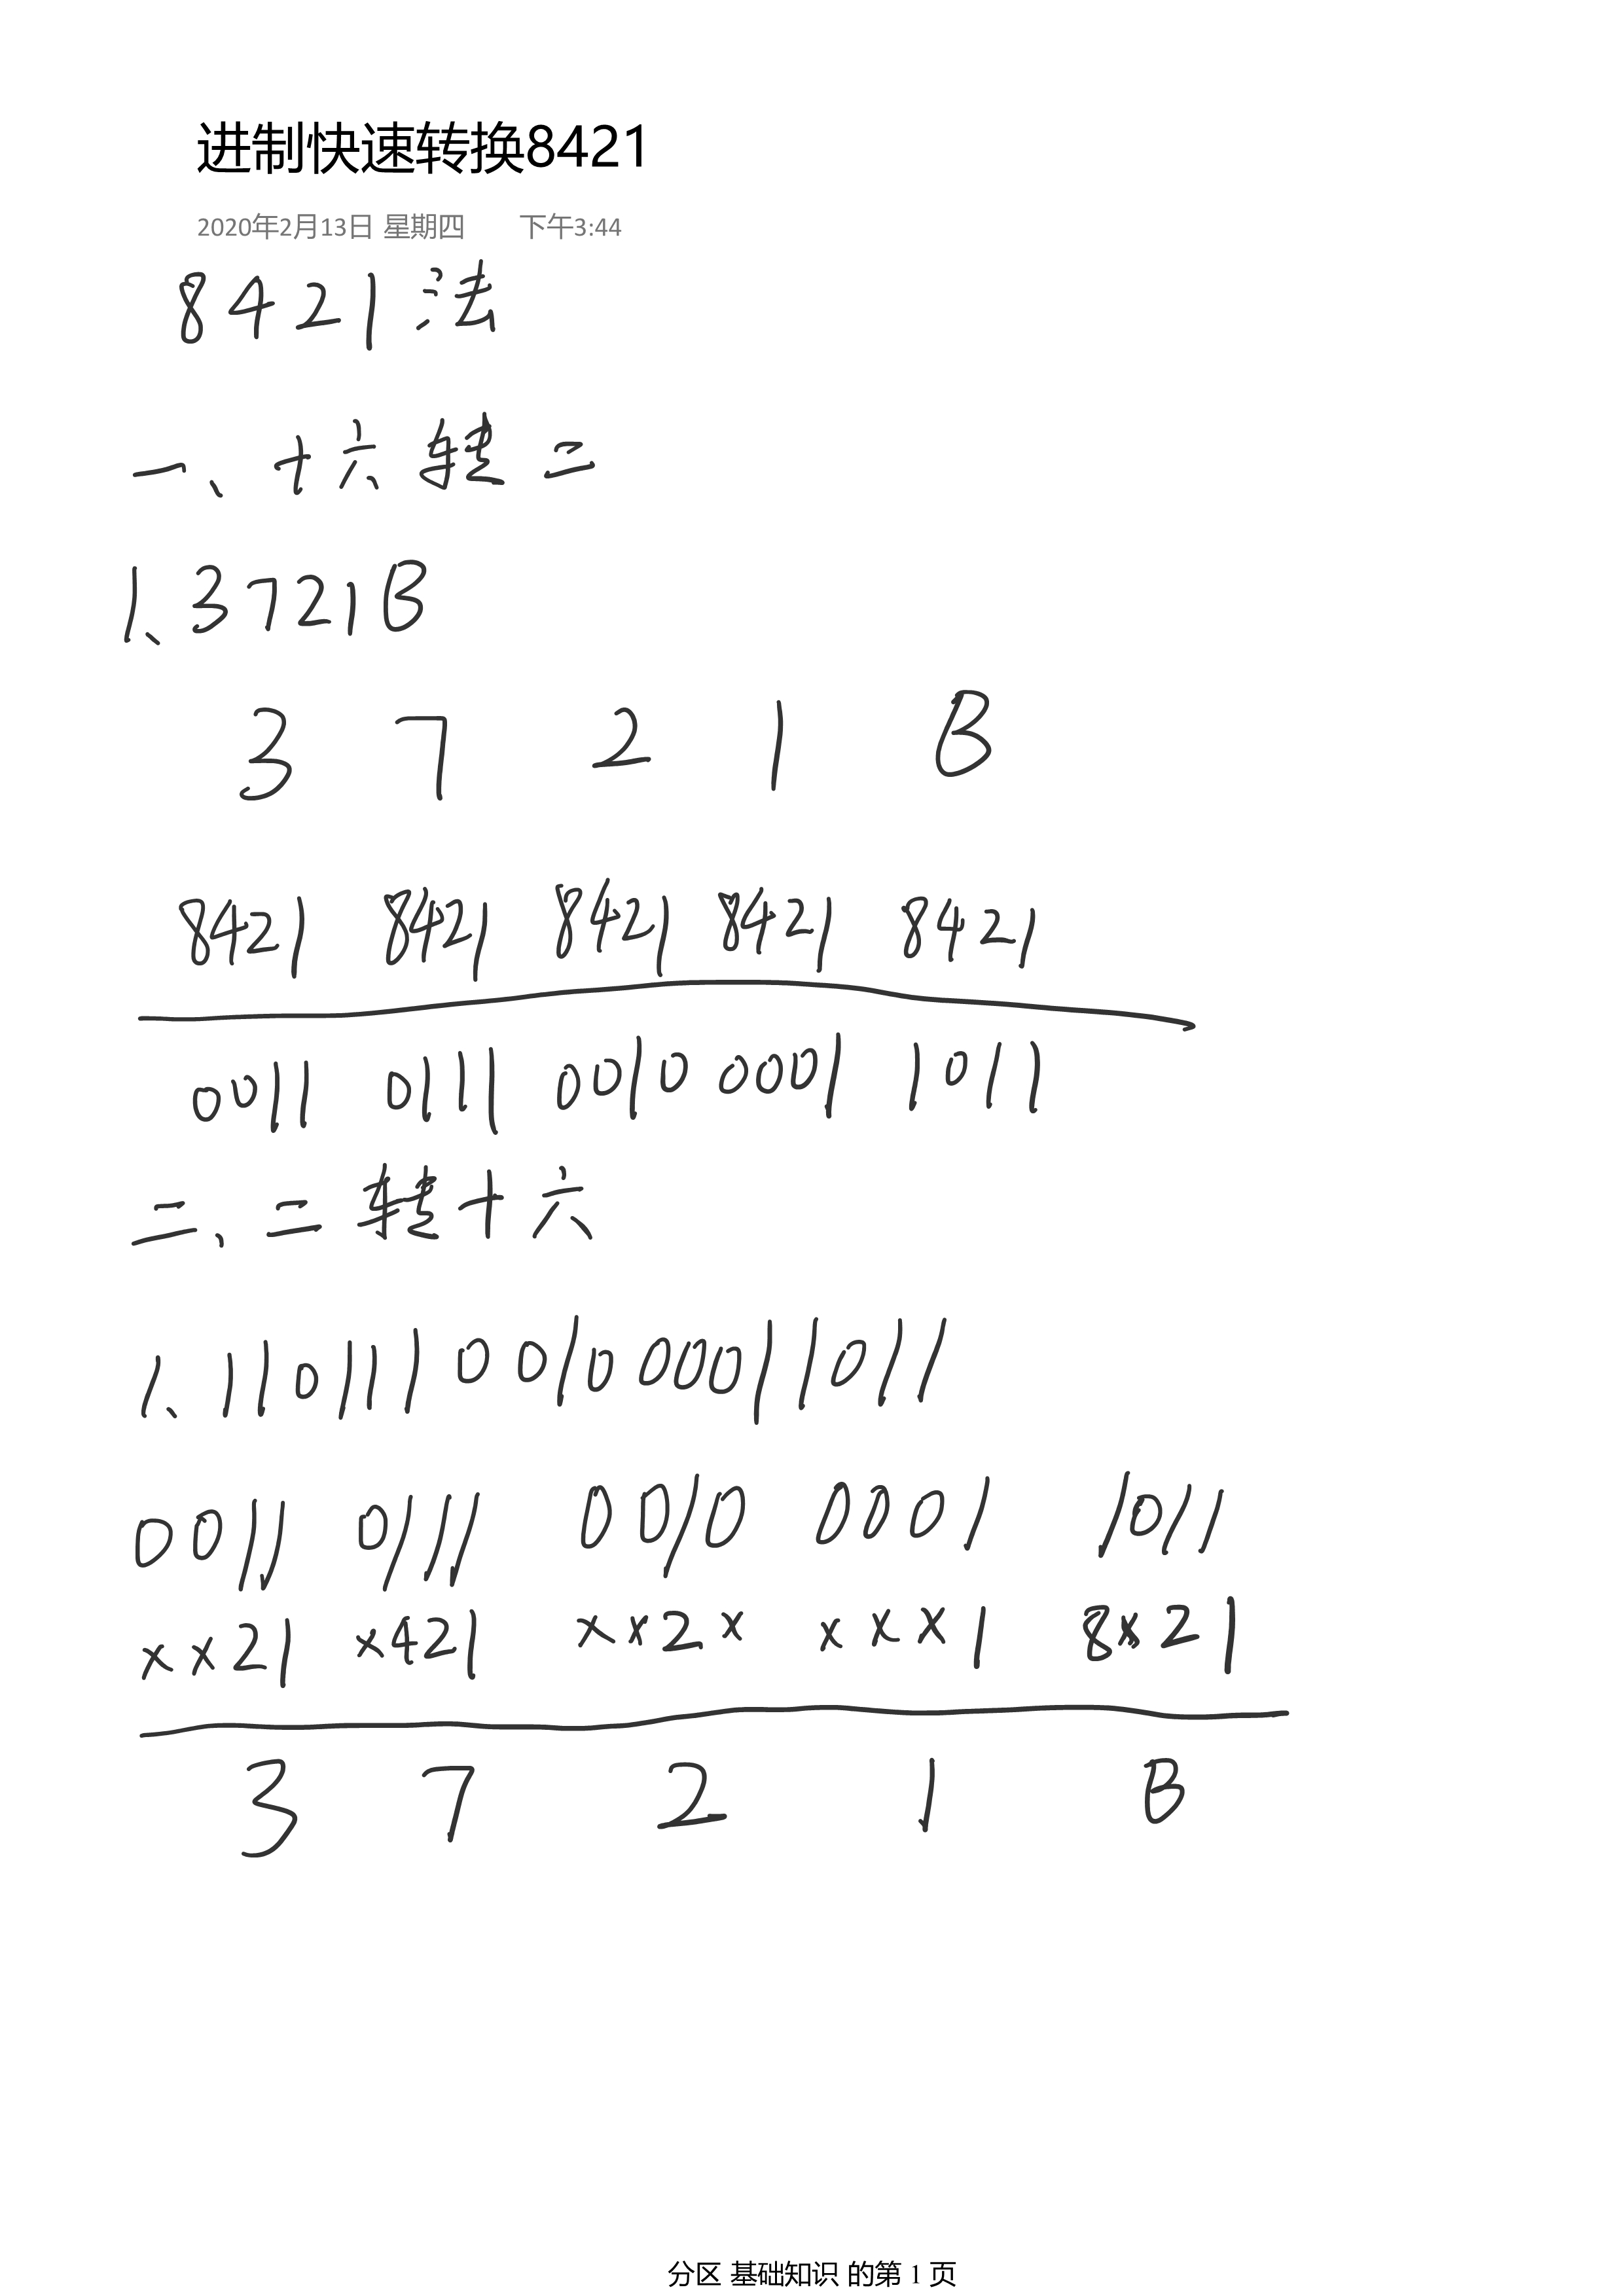 进制快速转换8421
2020年2月13日 星期四 下午3:44
8421法
一、十六转二
1、3721B
3 7 2 1 B
8421 8421 8421 8421 8421
0011 0111 0010 0001 1011
二、二转十六
1、110111001000011011
0011 0111 0010 0001 1011
××21 ×421 ××2× ×××1 8×21
3 7 2 1 B
分区 基础知识 的第 1 页